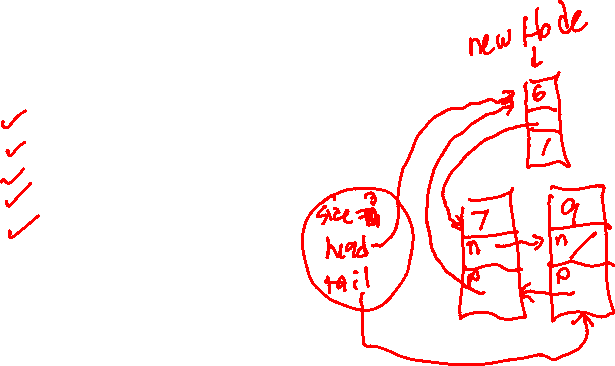 new Node
6
/
size = 3
head
tail
7
n
p
9
n /
p